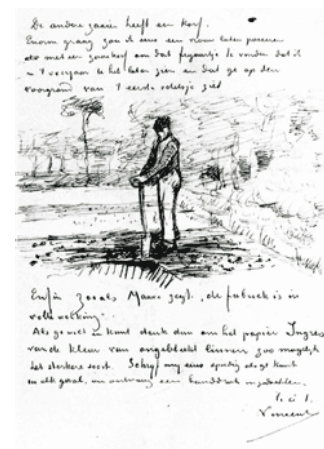 De andere zaaier heeft een korf.
Enorm graag zou ik eens een vrouw laten poseeren
met een zaaikorf om dat figuurtje te vinden dat ik
in 't voorjaar U heb laten zien en dat ge op den
voorgrond van 't eerste schetsje ziet
Enfin zooals Mauve zegt, de fabriek is in
volle werking.
Als ge wel en kunt denk dan om het papier Ingres
van de kleur van ongebleekt linnen zoo mogelijk
het sterkere soort. Schrijf mij eens spoedig als ge kunt
in elk geval, en ontvang een handdruk in gedachten.
t. à t.
Vincent